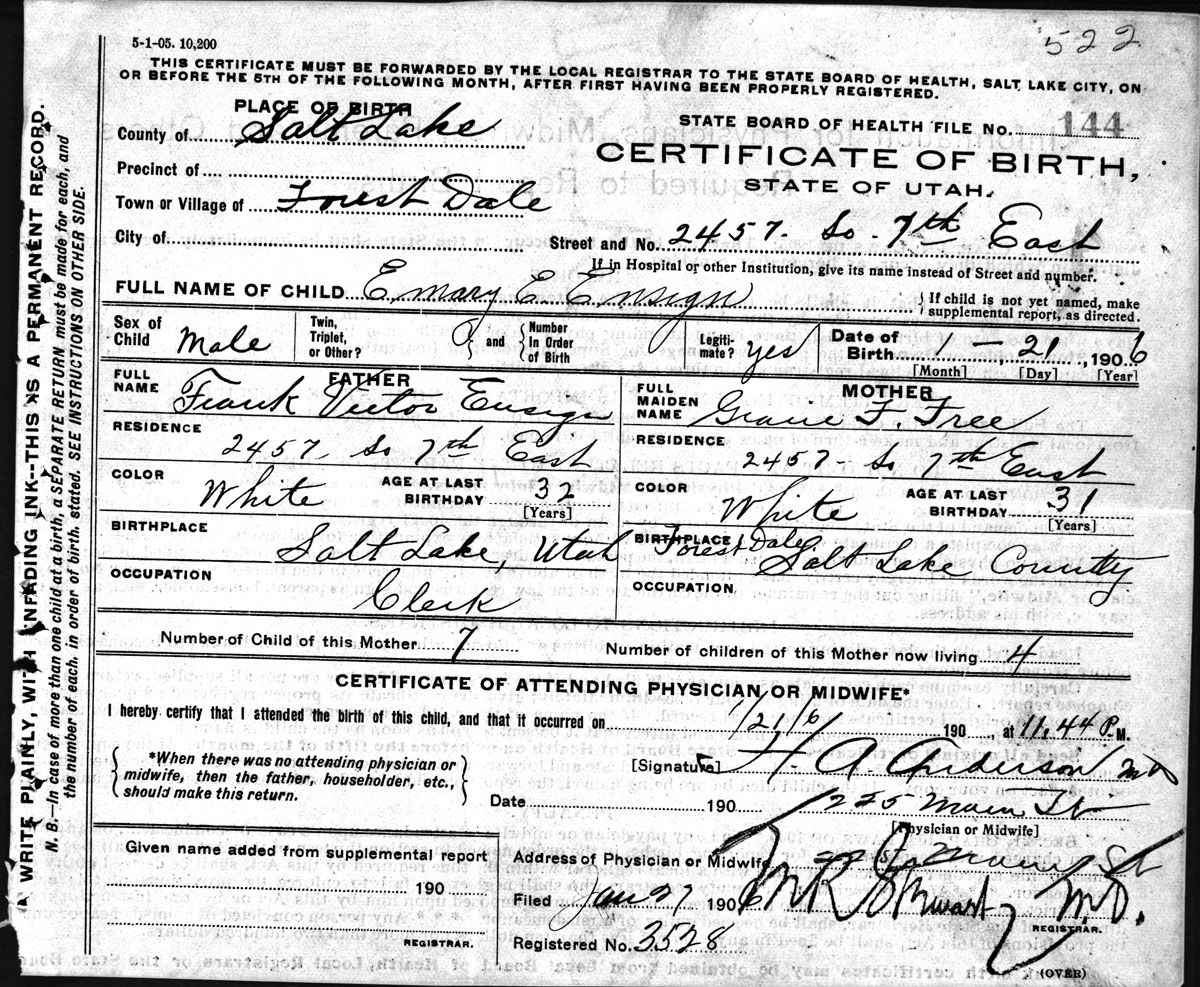 5-1-05. 10,200
522
THIS CERTIFICATE MUST BE FORWARDED BY THE LOCAL REGISTRAR TO THE STATE BOARD OF HEALTH, SALT LAKE CITY, ON
OR BEFORE THE 5TH OF THE FOLLOWING MONTH, AFTER FIRST HAVING BEEN PROPERLY REGISTERED.
PLACE OF BIRTH
County of Salt Lake
STATE BOARD OF HEALTH FILE No. 144
CERTIFICATE OF BIRTH,
STATE OF UTAH.
Precinct of
Town or Village of Forest Dale
City of
Street and No. 2457. So. 7th East
If in Hospital or other Institution, give its name instead of Street and number.
FULL NAME OF CHILD Emary E Ensign
If child is not yet named, make
supplemental report, as directed.
Sex of Child Male
Twin, Triplet, or Other?
and Number In Order of Birth
Legiti-mate? yes
Date of Birth 1 - 21, 1906
[Month] [Day] [Year]
FATHER
FULL NAME Frank Victor Ensign
RESIDENCE
2457- So 7th East
COLOR White
AGE AT LAST BIRTHDAY 32
[Years]
BIRTHPLACE
Salt Lake, Utah
OCCUPATION
Clerk
MOTHER
FULL MAIDEN NAME F. Free
RESIDENCE
2457- So 7th East
COLOR White
AGE AT LAST BIRTHDAY 31
[Years]
BIRTHPLACE Forest Dale
Salt Lake County
OCCUPATION
Number of Child of this Mother 7
Number of children of this Mother now living 4
CERTIFICATE OF ATTENDING PHYSICIAN OR MIDWIFE*
I hereby certify that I attended the birth of this child, and that it occurred on 1/21/6 190, at 11,44 P. M.
*When there was no attending physician or
midwife, then the father, householder, etc.,
should make this return.
[Signature] H. A. Anderson MD
Date 190
Main St
[Physician or Midwife]
Given name added from supplemental report
190
REGISTRAR.
Address of Physician or Midwife Main St
Filed Jan 27 1906
M.D.
REGISTRAR.
Registered No. 3528
(OVER)
WRITE PLAINLY, WITH UNFADING INK--THIS IS A PERMANENT RECORD.
N. B.—In case of more than one child at a birth, a SEPARATE RETURN must be made for each, and
the number of each, in order of birth, stated. SEE INSTRUCTIONS ON OTHER SIDE.